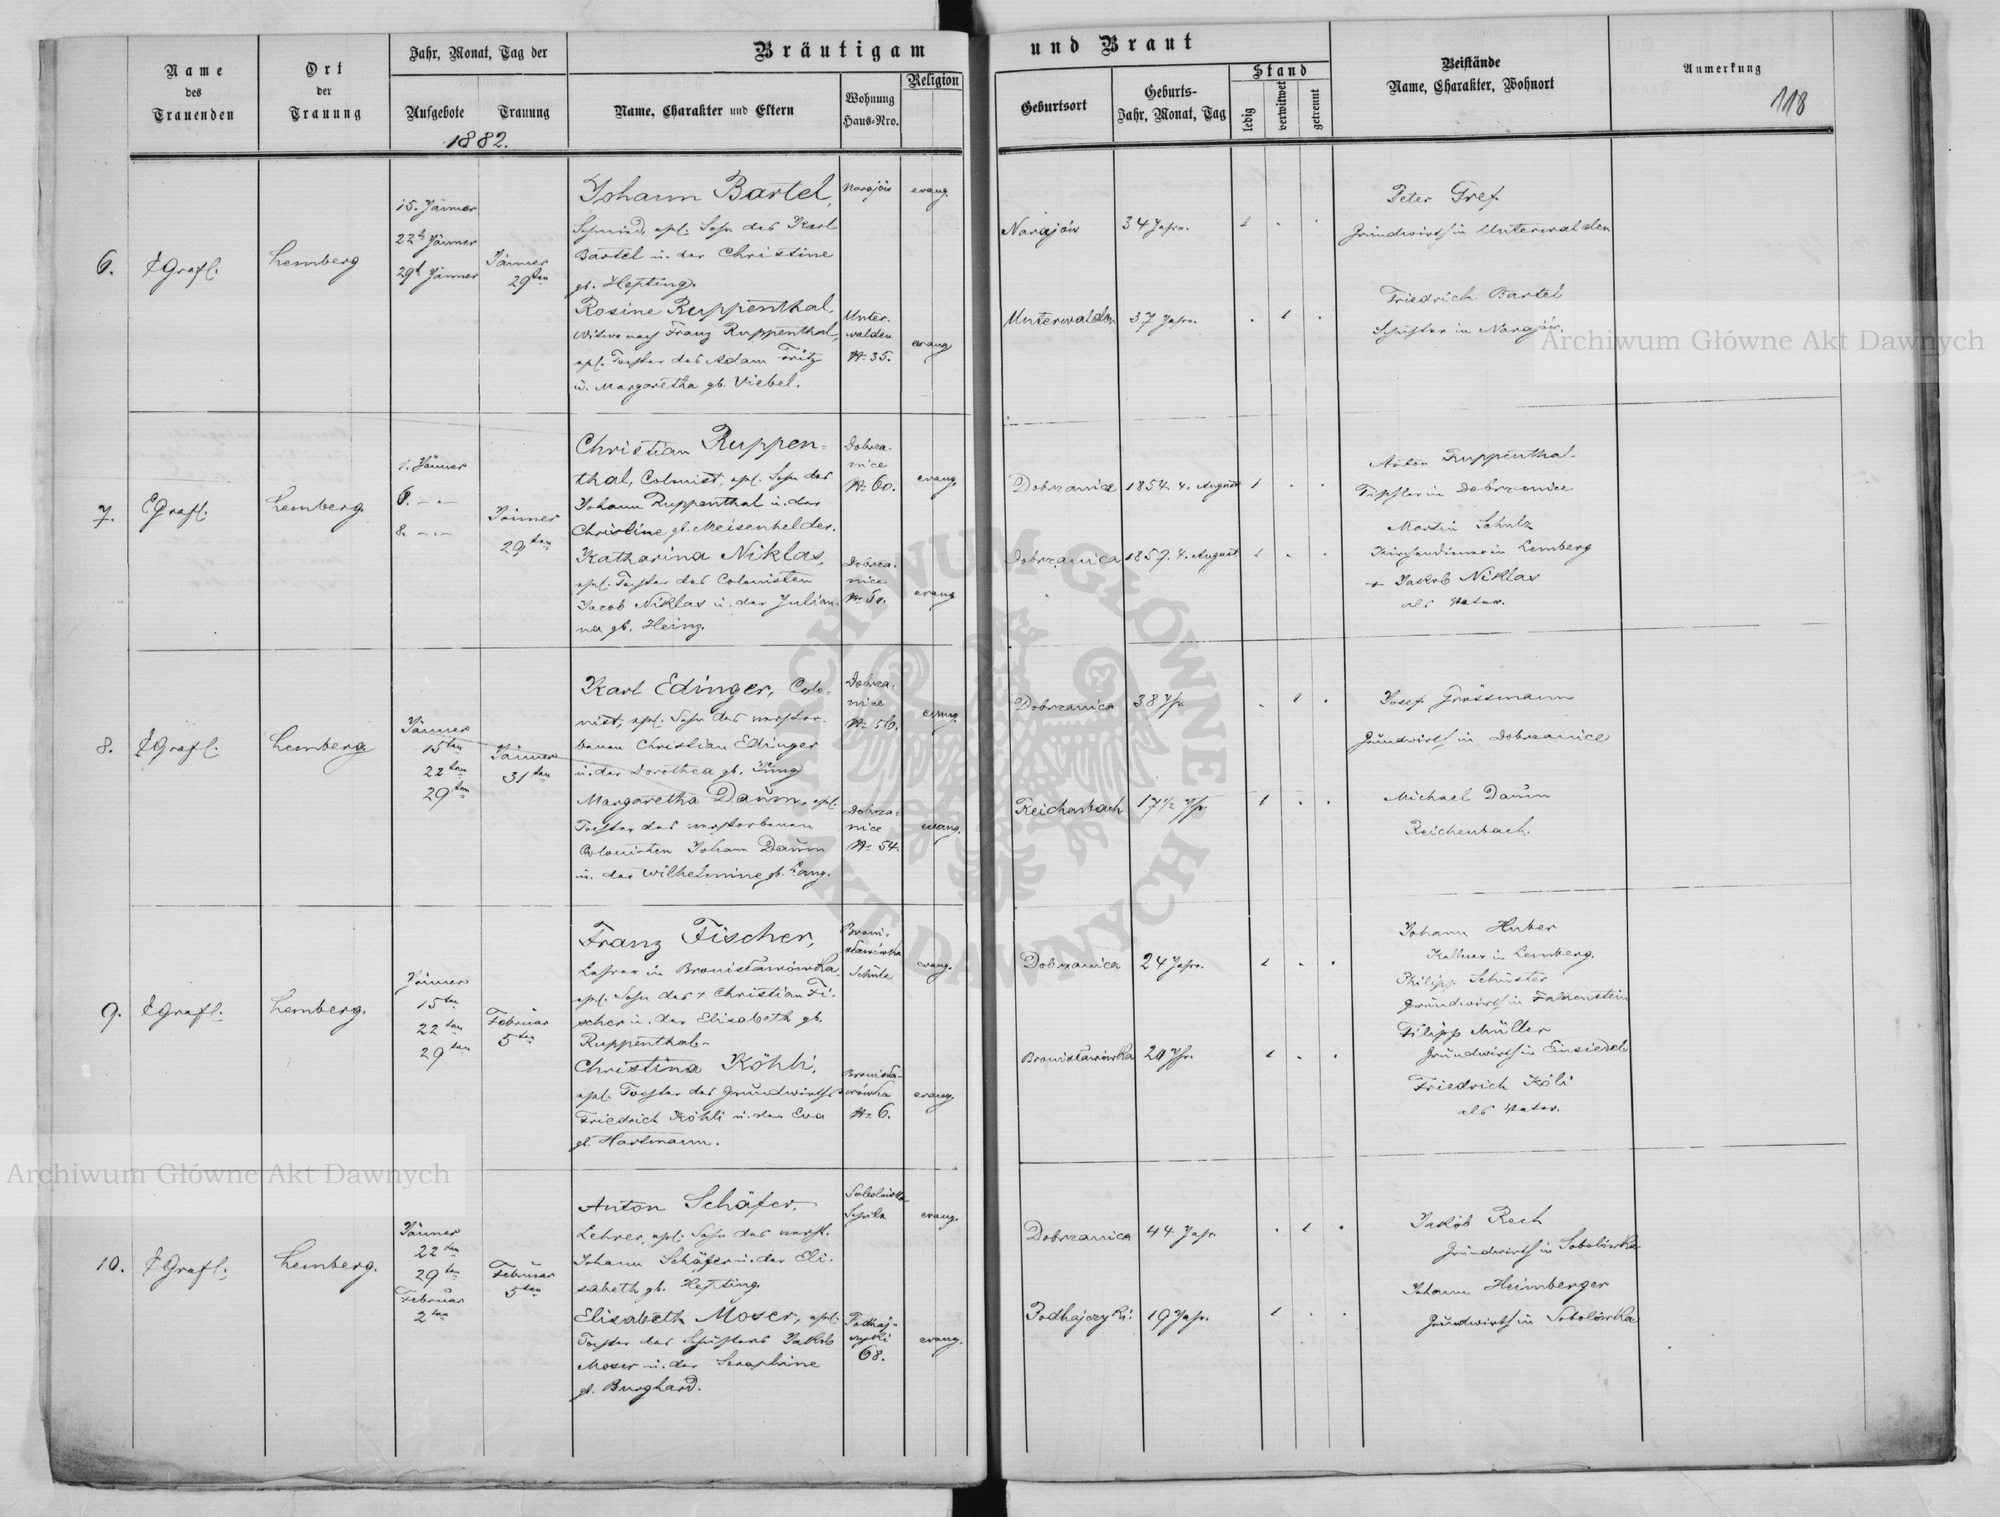 Name
des
Trauenden
Ort
der
Trauung
Jahr, Monat, Tag der
Aufgebote
Trauung
1882.
Bräutigam
Name, Charakter und Eltern
Wohnung
Haus-Nro.
Religion
und Braut
Geburtsort
Geburts-
Jahr, Monat, Tag
Stand
ledig
verwitwet
getrennt
Beistände
Name, Charakter, Wohnort
Anmerkung
118
6.
Lemberg
15. Jänner
22t Jänner
29t Jänner
Jänner
29ten
Johann Bartel,
Schmied, ehel. Sohn des Karl
Bartel u. der Christine
gb. Hepting.
Narajów
evang.
Narajów
34 Jahre.
1 . .
Peter Gref
Grundwirth in Unterwalden
Rosine Ruppenthal,
Witwe nach Franz Ruppenthal,
ehel. Tochter des Adam Fritz
u. Margaretha gb. Viebel.
Unter-
walden
Nr. 35.
evang
Unterwalden
37 Jahre.
. 1 .
Friedrich Bartel
Schuster in Narajów.
7.
Lemberg.
1. Jänner
6. — „ —
8. — „ —
Jänner
29ten
Christian Ruppen-
thal, Colonist, ehel. Sohn des
Johann Ruppenthal u. der
Christine gb. Meisenhelder.
Dobrza-
nice
Nr. 60.
evang.
Dobrzanica
1854. 4. August
1 . .
Anton Ruppenthal
Tischler in Dobrzanice
Martin Schulz
Kirchendiener in Lemberg
Katharina Niklas,
ehel. Tochter des Colonisten
Jacob Niklas u. der Julian-
na gb. Heinz.
Dobrza-
nice
evang
Dobrzanica
1859. 4. August
1 . .
+ Jakob Niklas
als Vater.
8.
Lemberg
Jänner
15ten
22ten
29ten
Jänner
31ten
Karl Edinger, Colo-
nist, ehel. Sohn des verstor-
benen Christian Edinger
u. der Dorothea gb. Jung
Dobrza-
nice
Nr. 56.
evang.
Dobrzanica
38 Jhr.
. 1 .
Josef Grossmann
Grundwirth in Dobrzanice
Margaretha Daum, ehel.
Tochter des verstorbenen
Colonisten Johann Daum
u. der Wilhelmine gb. Lang.
Dobrza-
nice
Nr. 54.
evang.
Reichenbach
17 1/2 Jhr.
1 . .
Michael Daum
Reichenbach.
9.
Lemberg.
Jänner
15ten
22ten
29ten
Februar
5ten
Franz Fischer,
Lehrer in Bronisławówka,
ehel. Sohn des + Christian Fi-
scher u. der Elisabeth gb.
Ruppenthal.
Broni-
sławówka
Schule
evang.
Dobrzanica
24 Jahre.
1 . .
Johann Huber
Kellner in Lemberg.
Philipp Schuster
Grundwirth in Falkenstein
Christina Köhli,
ehel. Tochter des Grundwirths
Friedrich Köhli u. der Eva
gb. Hartmann.
Bronisła-
wówka
Nr. 6.
evang.
Bronisławówka
20 Jhr.
1 . .
Filipp Müller
Grundwirth in Einsiedel
Friedrich Köli
als Vater.
10.
Lemberg.
Jänner
22ten
29ten
Februar
2ten
Februar
5ten
Anton Schäfer,
Lehrer, ehel. Sohn des verst.
Johann Schäfer u. der Eli-
sabeth gb. Hepting.
Sobolówka
Schule
evang.
Dobrzanica
44 Jahr.
. 1 .
Jakob Rech
Grundwirth in Sobolówka
Elisabeth Moser, ehel.
Tochter des Schusters Jakob
Moser u. der Seraphine
gb. Burghard.
Podhaj-
czyki
68.
evang.
Podhajczyki
19 Jahr.
1 . .
Johann Heimberger
Grundwirth in Sobolówka
Archiwum Główne Akt Dawnych
Archiwum Główne Akt Dawnych
ARCHIWUM GŁÓWNE AKT DAWNYCH